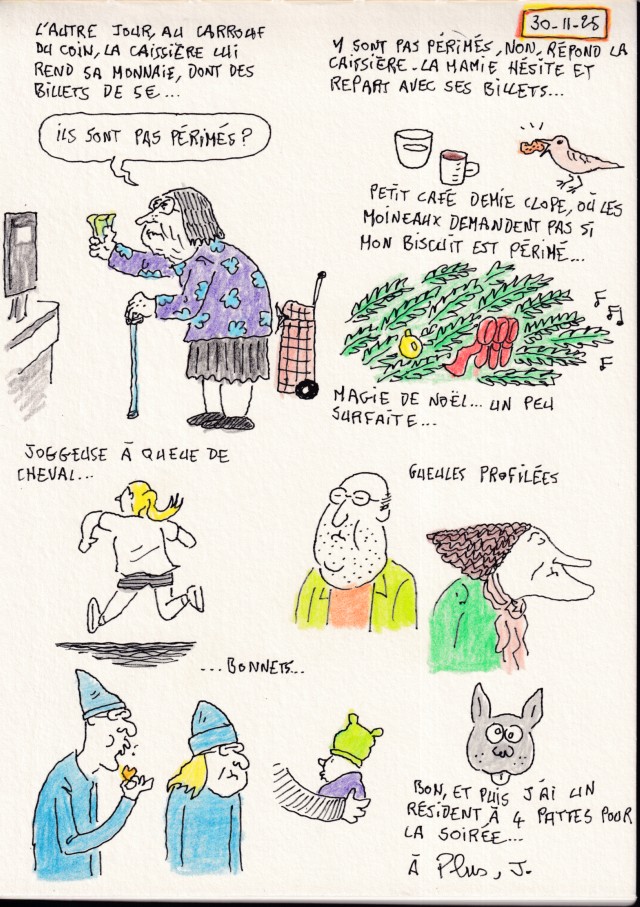 30-11-25
L'AUTRE JOUR, AU CARROUF
DU COIN, LA CAISSIÈRE LUI
REND SA MONNAIE, DONT DES
BILLETS DE 5€...
ILS SONT PAS PÉRIMÉS ?
Y SONT PAS PÉRIMÉS, NON, RÉPOND LA
CAISSIÈRE. LA MAMIE HÉSITE ET
REPART AVEC SES BILLETS...
PETIT CAFÉ DEMIE CLOPE, OÙ LES
MOINEAUX DEMANDENT PAS SI
MON BISCUIT EST PÉRIMÉ...
MAGIE DE NOËL... UN PEU
SURFAITE...
JOGGEUSE À QUEUE DE
CHEVAL...
GUEULES PROFILÉES
...BONNETS...
BON, ET PUIS J'AI UN
RÉSIDENT À 4 PATTES POUR
LA SOIRÉE...
À Plus, J.